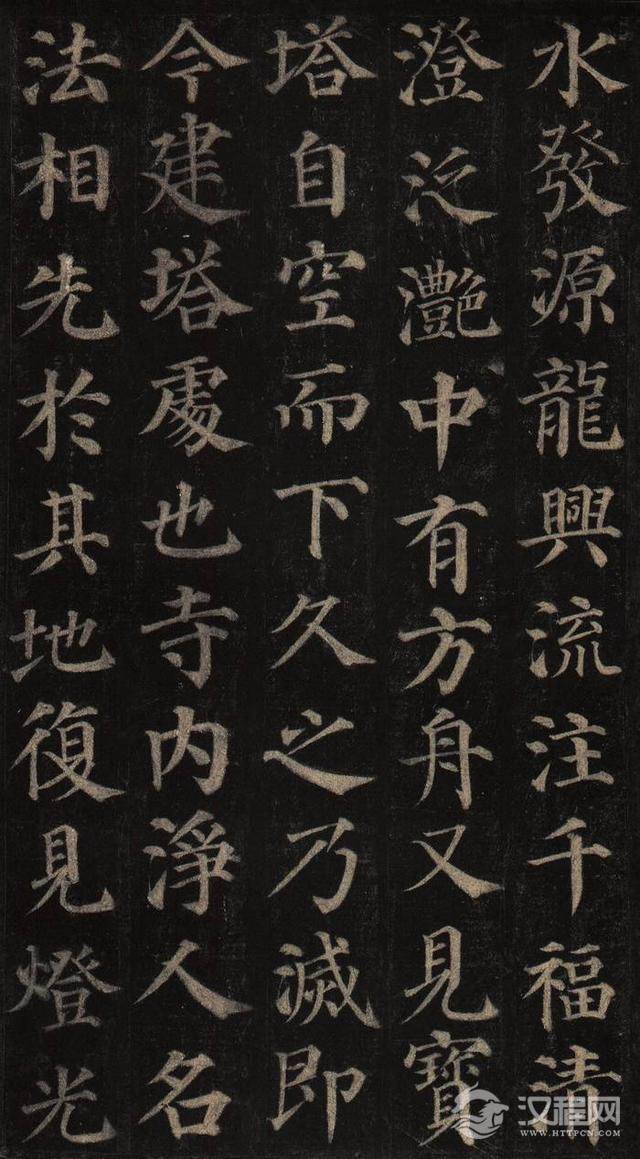 水發源龍興流注千福清
澄泛灧中有方舟又見寶
塔自空而下久之乃滅即
今建塔處也寺内淨人名
法相先於其地復見燈光
汉程网
WWW.HTTPCN.COM